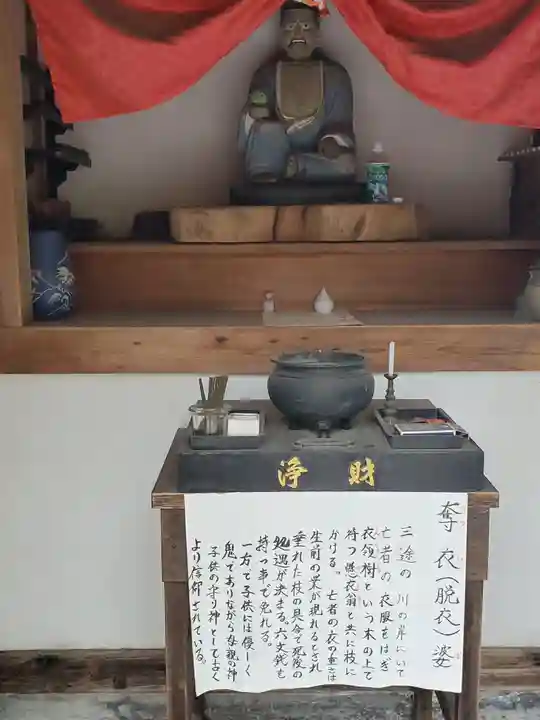 浄財
奪衣(脱衣)婆
三途の川の岸にいて
亡者の衣服をはぎ
衣領樹という木の上で
待つ懸衣翁と共に枝に
かける。亡者の衣の重さは
生前の業が現れるとされ
垂れた枝の具合で死後の
処遇が決まる。六文銭を
持つ事で免れる。
一方で子供には優しく
鬼でありながら母親の神
子供の守り神として古く
より信仰されている。